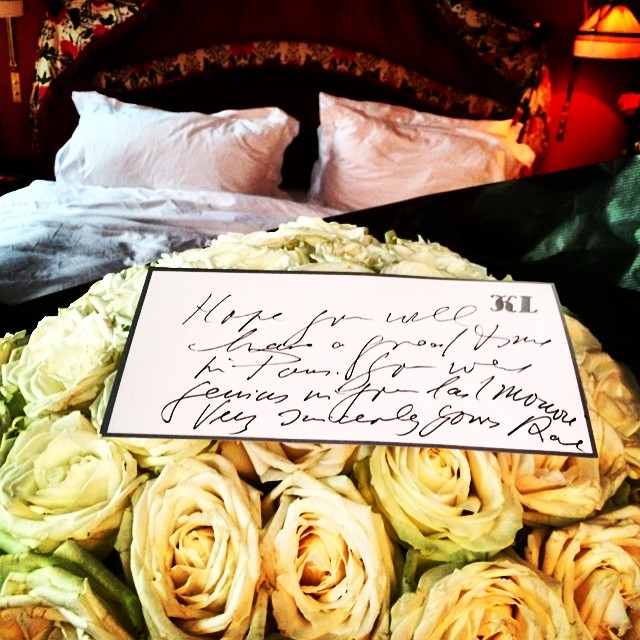 KL
Hope you will
have a good time
in Paris. You was
genius in your last movie
Very sincerely yours